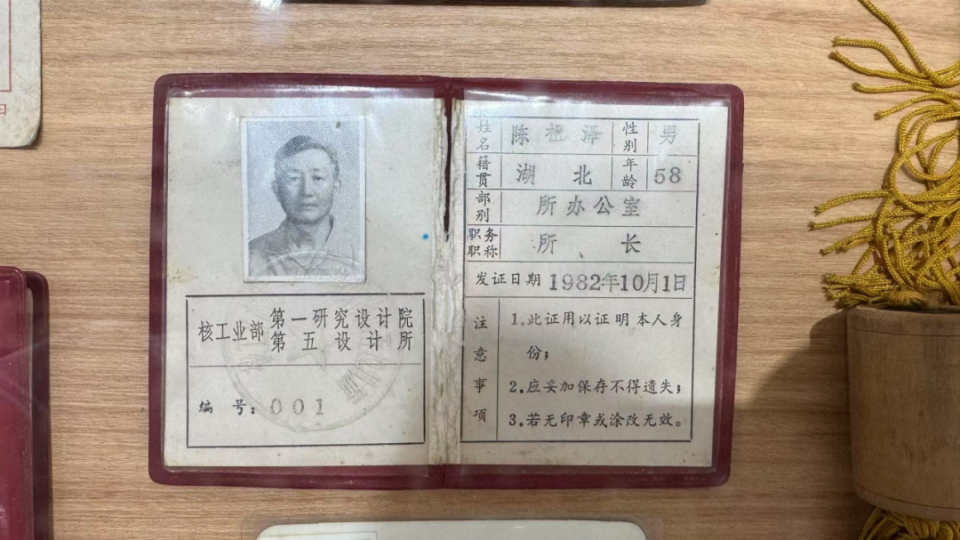 核工业部 第一研究设计院
第五设计所
编号:001
姓名 陈祖泽 性别 男
籍贯 湖北 年龄 58
部别 所办公室
职务职称 所长
发证日期 1982年10月1日
注意事项
1.此证用以证明本人身
份;
2.应妥加保存不得遗失;
3.若无印章或涂改无效。
日